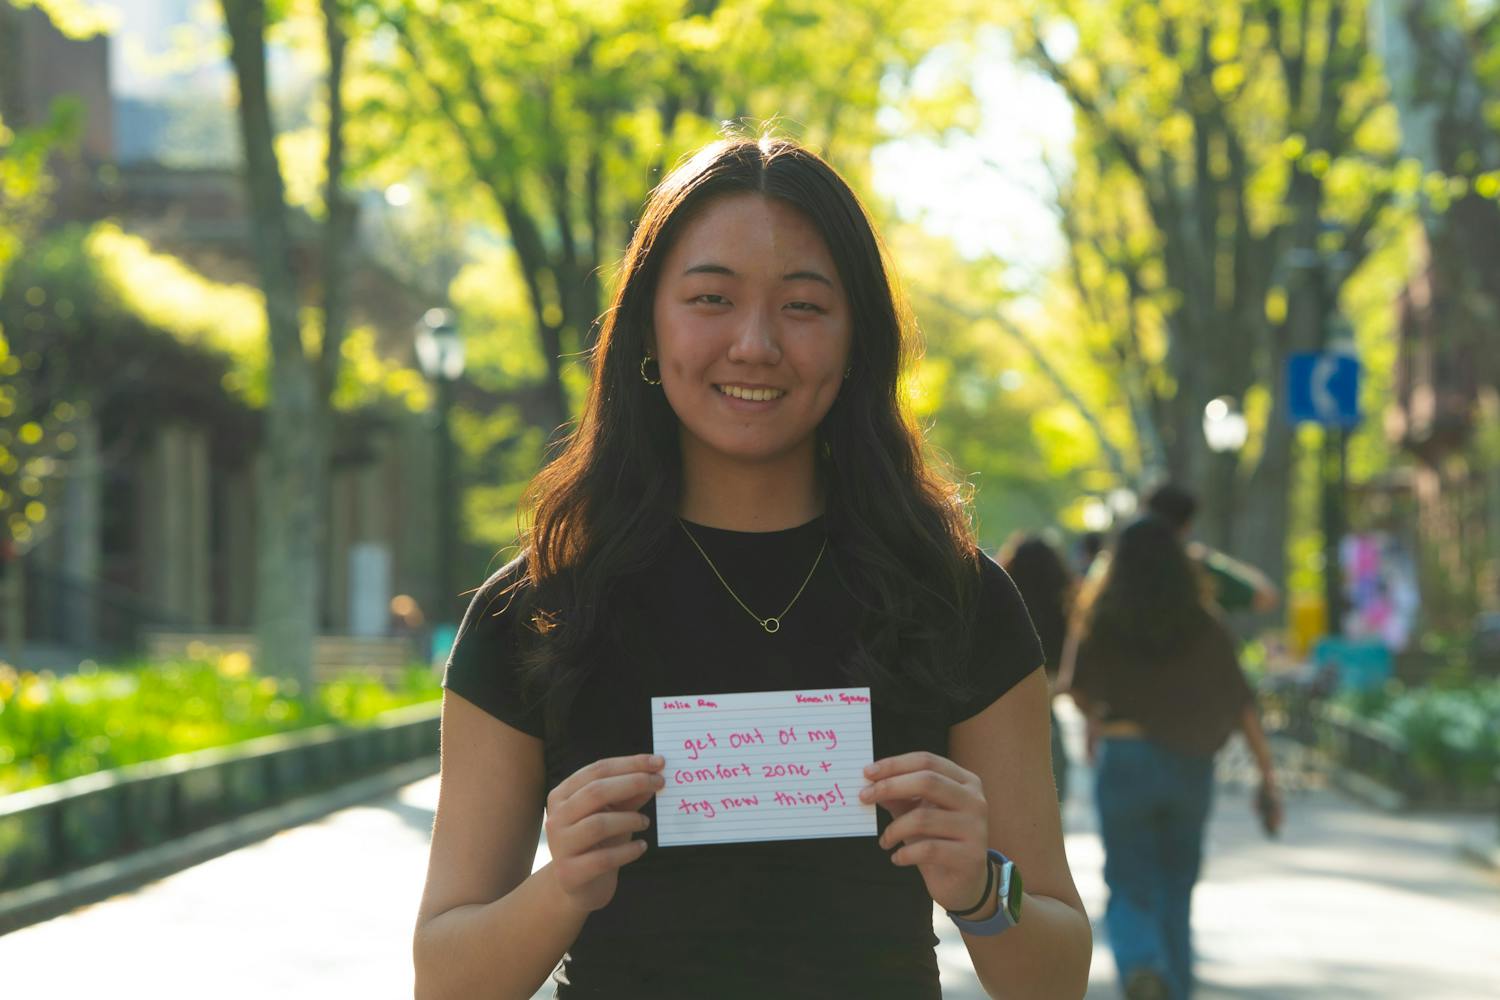 Julia Ren Kennett Square
get out of my
comfort zone +
try new things!